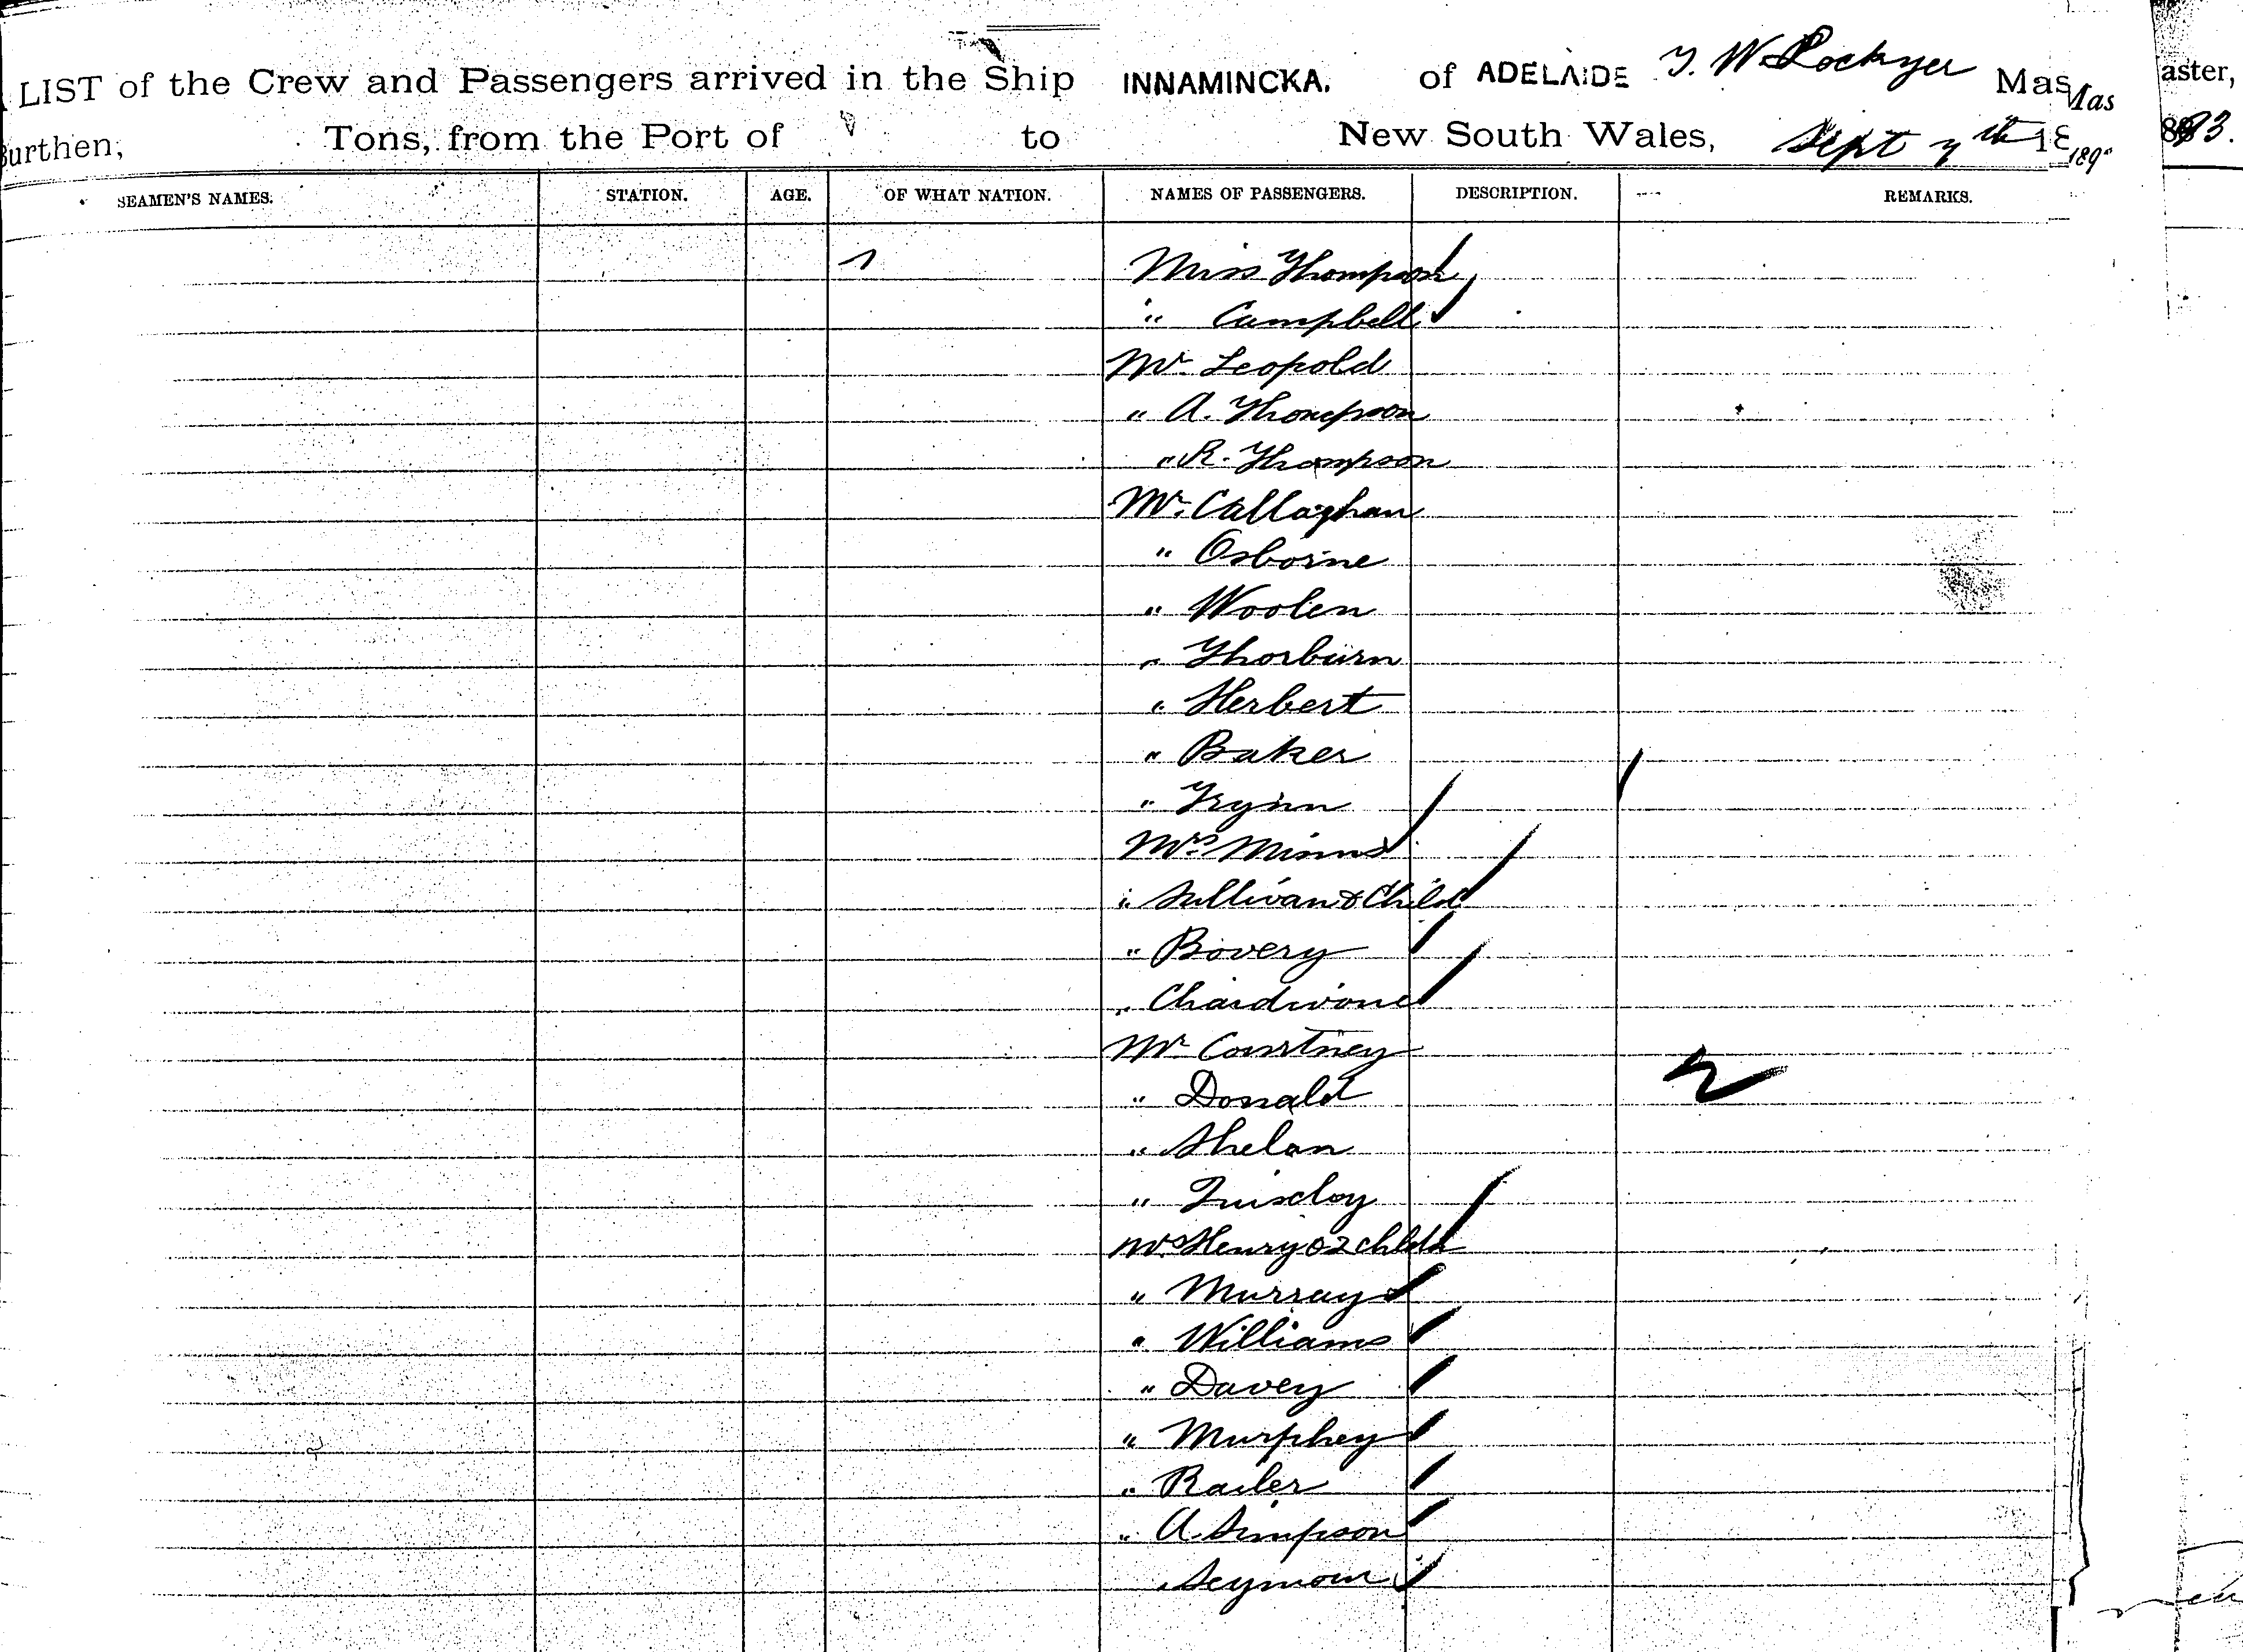 LIST of the Crew and Passengers arrived in the Ship INNAMINCKA. of ADELAIDE J. W. Lockyer Mas Mas aster,
Burthen, Tons, from the Port of to New South Wales, Sept 7th 18 189 93.
SEAMEN'S NAMES. STATION. AGE. OF WHAT NATION. NAMES OF PASSENGERS. DESCRIPTION. REMARKS.
Miss Thompson
" Campbell
Mr Leopold
" A. Thompson
" R. Thompson
Mr. Callaghan
" Osborne
" Woolen
" Thorburn
" Herbert
" Baker
"
Mrs Minns
" Sullivan & Child
" Bovery
"
Mr Courtney
" Donald
" Shelan
"
Mrs Henry & 2 Childn
" Murray
" Williams
" Davey
" Murphey
" Railer
" A. Simpson
" Seymour